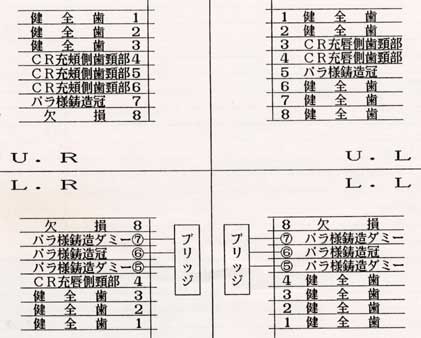 健全歯 1
健全歯 2
健全歯 3
CR充頬側歯頸部 4
CR充頬側歯頸部 5
CR充頬側歯頸部 6
パラ様鋳造冠 7
欠損 8
U.R
1 健全歯
2 健全歯
3 CR充唇側歯頸部
4 CR充唇側歯頸部
5 パラ様鋳造冠
6 健全歯
7 健全歯
8 健全歯
U.L
L.R
欠損 8
パラ様鋳造ダミー⑦
パラ様鋳造冠 ⑥
パラ様鋳造ダミー⑤
CR充唇側歯頸部 4
健全歯 3
健全歯 2
健全歯 1
ブリッジ
L.L
ブリッジ
8 欠損
⑦ パラ様鋳造ダミー
⑥ パラ様鋳造冠
⑤ パラ様鋳造ダミー
4 健全歯
3 健全歯
2 健全歯
1 健全歯